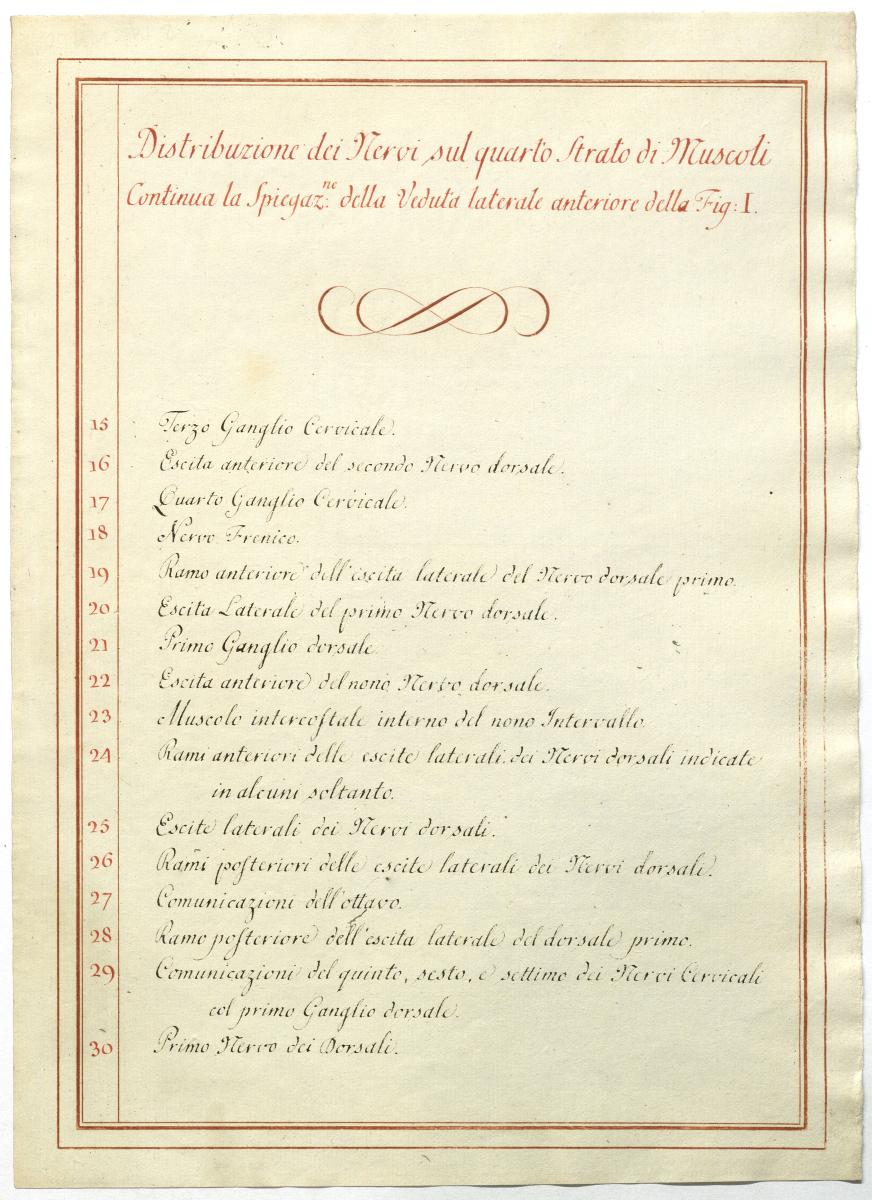 Distribuzione dei Nervi sul quarto Strato di Muscoli
Continua la Spiegaz.ne della Veduta laterale anteriore della Fig: I.
15 Terzo Ganglio Cervicale.
16 Escita anteriore del secondo Nervo dorsale.
17 Quarto Ganglio Cervicale.
18 Nervo Frenico.
19 Ramo anteriore dell'escita laterale del Nervo dorsale primo.
20 Escita Laterale del primo Nervo dorsale.
21 Primo Ganglio dorsale
22 Escita anteriore del nono Nervo dorsale.
23 Muscolo intercoſtale interno del nono Intervallo.
24 Rami anteriori delle escite laterali dei Nervi dorsali indicate
in alcuni soltanto.
25 Escite laterali dei Nervi dorsali.
26 Rami poſteriori delle escite laterali dei Nervi dorsali.
27 Comunicazioni dell'ottavo.
28 Ramo poſteriore dell'escita laterale del dorsale primo.
29 Comunicazioni del quinto, sesto, e settimo dei Nervi Cervicali
col primo Ganglio dorsale.
30 Primo Nervo dei Dorsali.